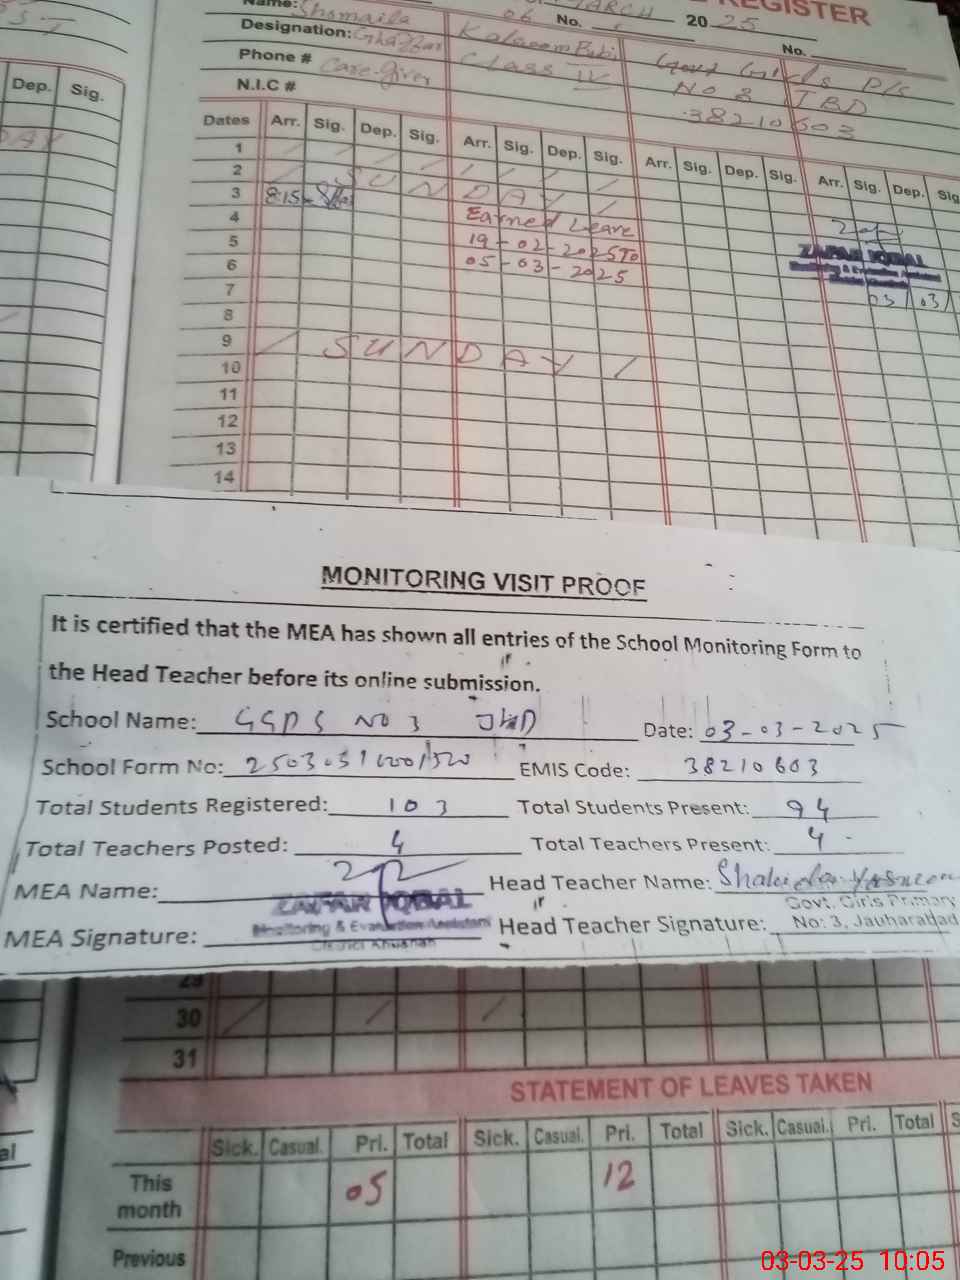 REGISTER
Name: Shomaila
06 No.
MARCH 2025
No.
Designation: Ghaffar
Kalsoom Bibi
Govt Girls P/S
Phone # Care-giver
Class IV
No 3 JBD
N.I.C #
38210603
Dates Arr. Sig. Dep. Sig. Arr. Sig. Dep. Sig. Arr. Sig. Dep. Sig. Arr. Sig. Dep. Sig
Dep. Sig.
1
2 SUNDAY
3 8:15
4 Earned Leave
5 19-02-2025 To
6 05-03-2025
ZAFAR IQBAL
Monitoring & Evaluation Assistant
03/03/
7
8
9 SUNDAY
10
11
12
13
14
MONITORING VISIT PROOF
It is certified that the MEA has shown all entries of the School Monitoring Form to
the Head Teacher before its online submission.
School Name: GGPS NO 3 JBD Date: 03-03-2025
School Form No: EMIS Code: 38210603
Total Students Registered: 103 Total Students Present: 94
Total Teachers Posted: 4 Total Teachers Present: 4
MEA Name: Head Teacher Name: Shahida Yasmeen
ZAFAR IQBAL
Monitoring & Evaluation Assistant
District Khushab
Govt. Girls Primary
No: 3, Jauharabad
MEA Signature: Head Teacher Signature:
29
30
31
STATEMENT OF LEAVES TAKEN
Sick. Casual. Pri. Total Sick. Casual. Pri. Total Sick. Casual. Pri. Total S
This month 05 12
Previous
03-03-25 10:05